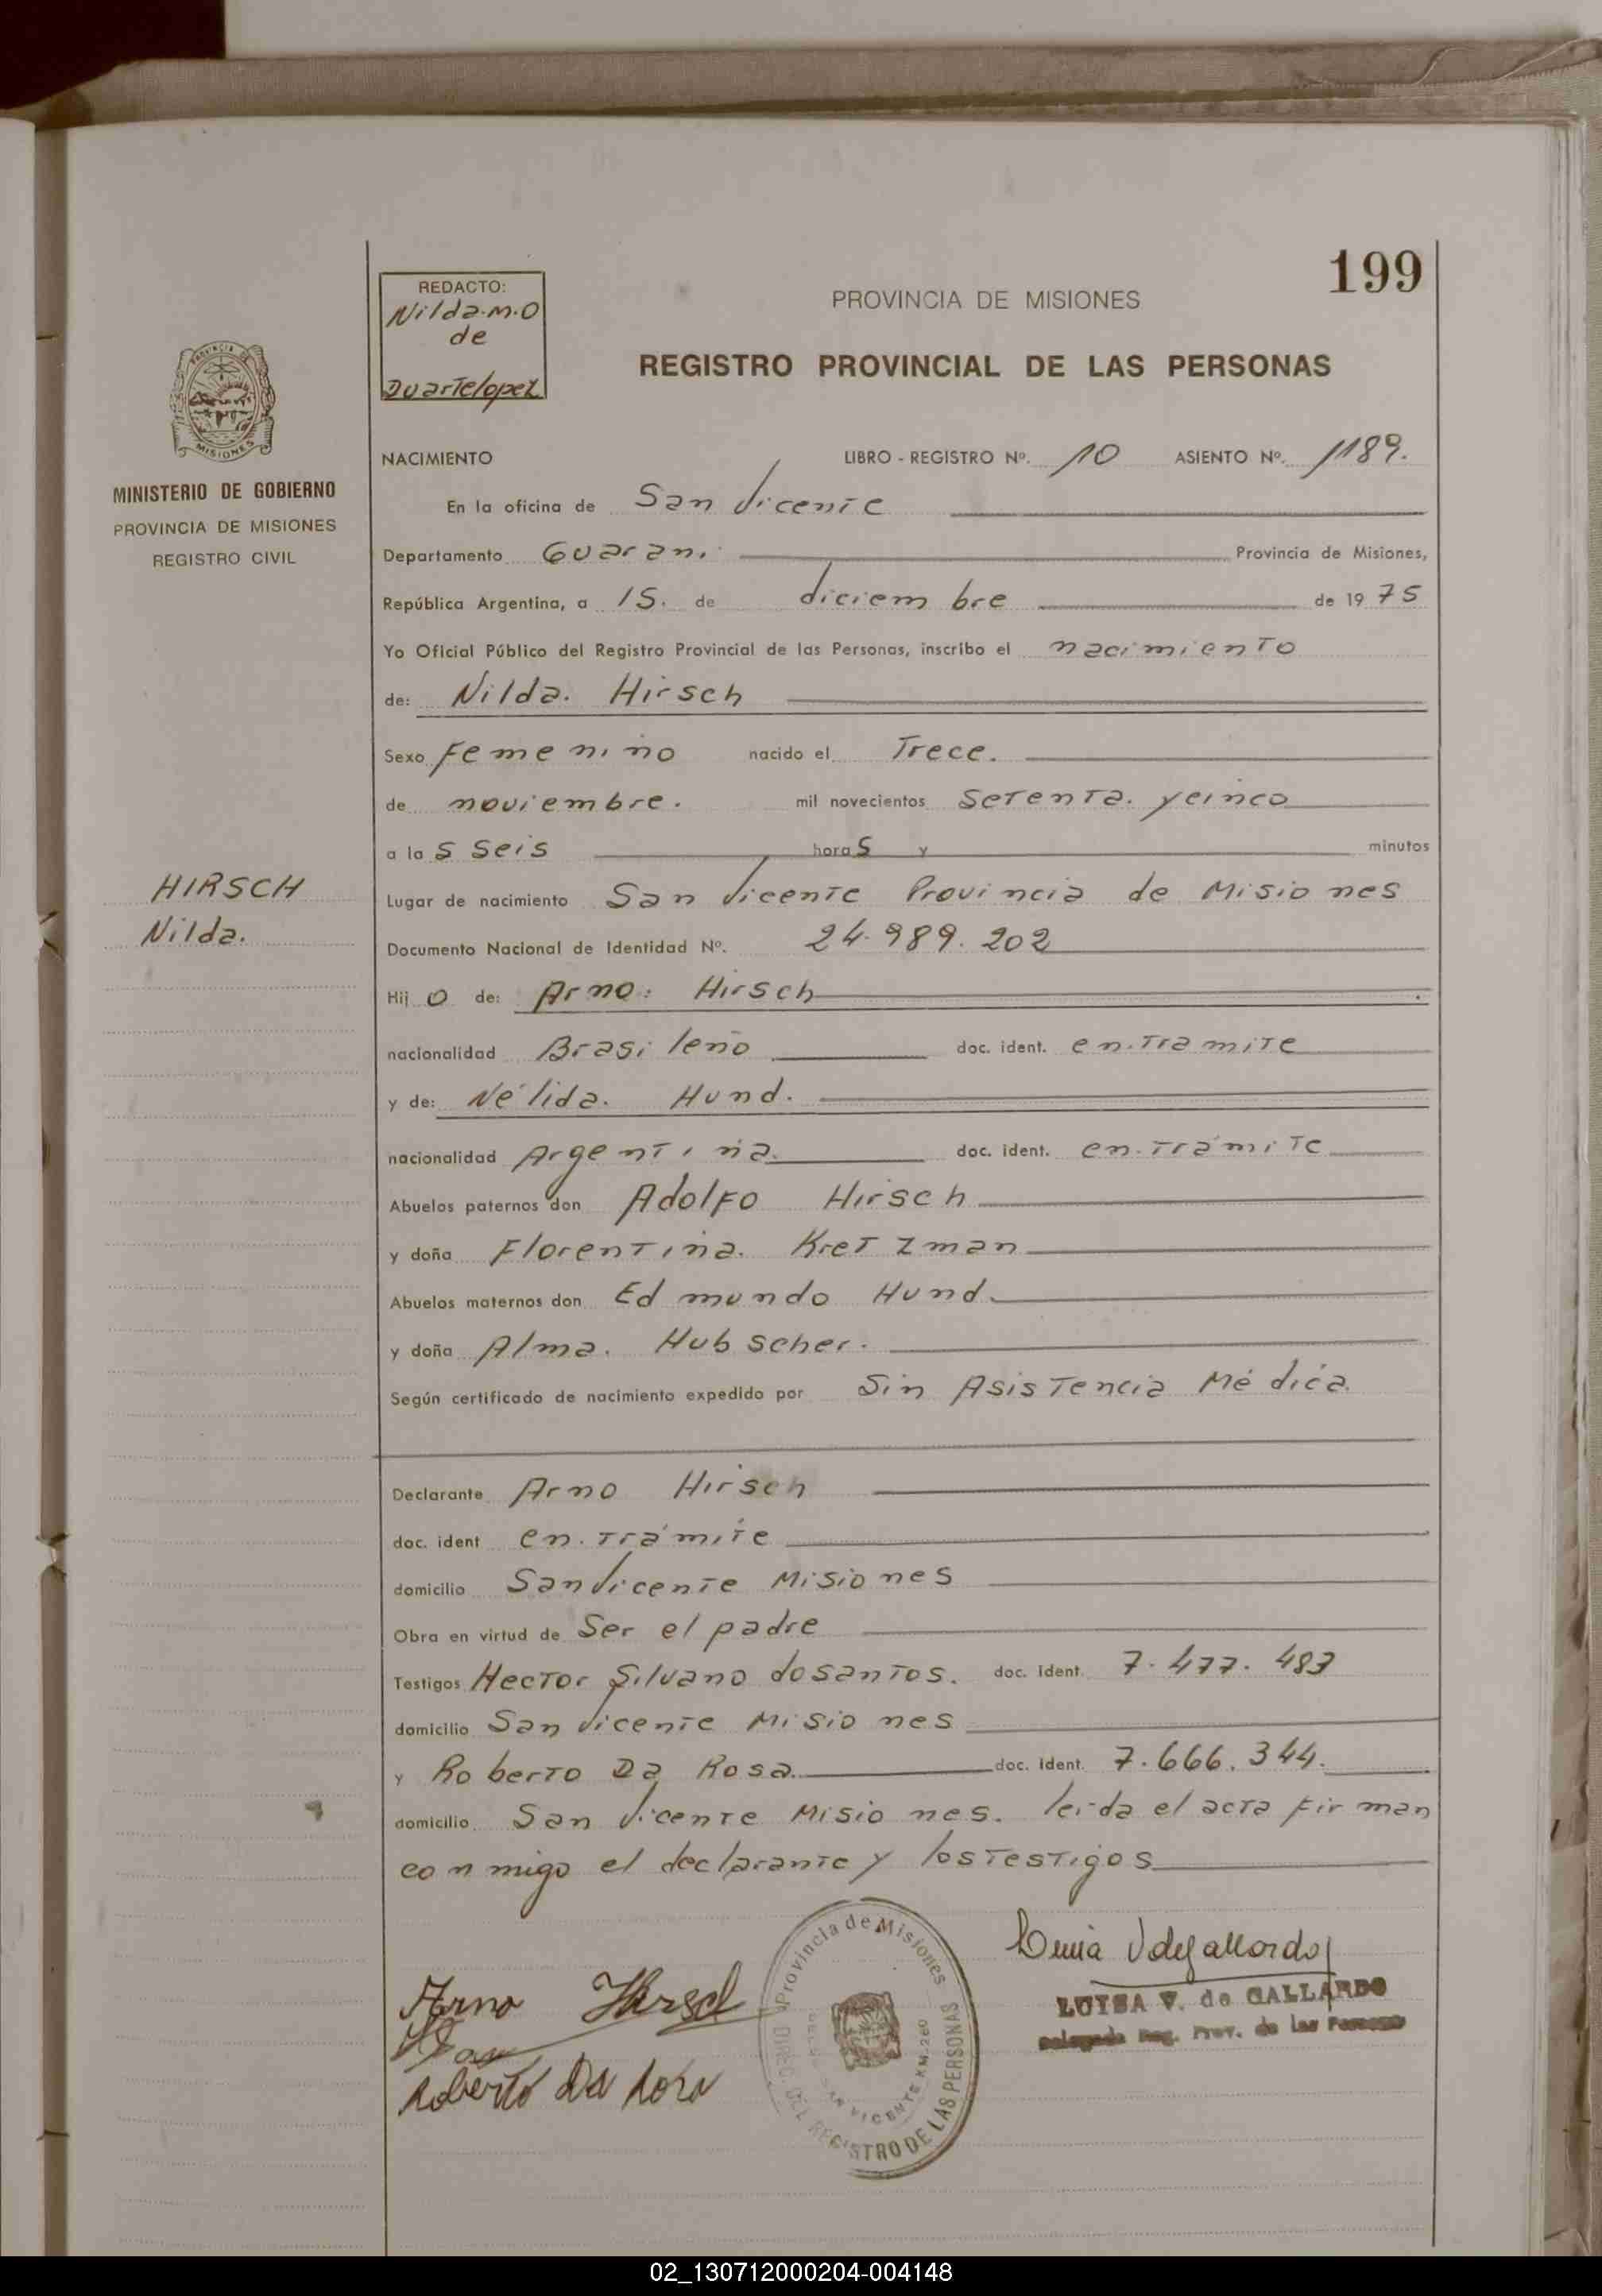 199
REDACTO:
Nilda.M.O
de
Duartelopez
PROVINCIA DE MISIONES
REGISTRO PROVINCIAL DE LAS PERSONAS
PROVINCIA DE
MISIONES
MINISTERIO DE GOBIERNO
PROVINCIA DE MISIONES
REGISTRO CIVIL
NACIMIENTO LIBRO - REGISTRO Nº. 10 ASIENTO Nº. 1189.
En la oficina de San Vicente
Departamento Guarani Provincia de Misiones,
República Argentina, a 15. de diciembre de 1975
Yo Oficial Público del Registro Provincial de las Personas, inscribo el nacimiento
de: Nilda. Hirsch
Sexo Femenino nacido el Trece.
de noviembre. mil novecientos setenta. ycinco
a las seis horas y minutos
HIRSCH
Nilda.
Lugar de nacimiento San Vicente Provincia de Misiones
Documento Nacional de Identidad Nº. 24.989.202
Hijo de: Arno: Hirsch
nacionalidad Brasileño doc. ident. en.tramite
y de: Nélida. Hund.
nacionalidad Argentina. doc. ident. en.trámite
Abuelos paternos don Adolfo Hirsch
y doña Florentina. Kretzman
Abuelos maternos don Edmundo Hund.
y doña Alma. Hubscher.
Según certificado de nacimiento expedido por Sin Asistencia Médica.
Declarante Arno Hirsch
doc. ident en.trámite
domicilio San Vicente Misiones
Obra en virtud de Ser el padre
Testigos Hector Silvano dosantos. doc. ident. 7.477.487
domicilio San Vicente Misiones
y Roberto Da Rosa. doc. ident. 7.666.344.
domicilio San Vicente Misiones. leida el acta firman
conmigo el declarante y los testigos
Arno Hirsch
Roberto Da Rosa
Provincia de Misiones
DIREC. DEL REGISTRO DE LAS PERSONAS
SAN VICENTE KM. 260
LUISA V. de GALLARDO
Delegada Reg. Prov. de las Personas
02_130712000204-004148